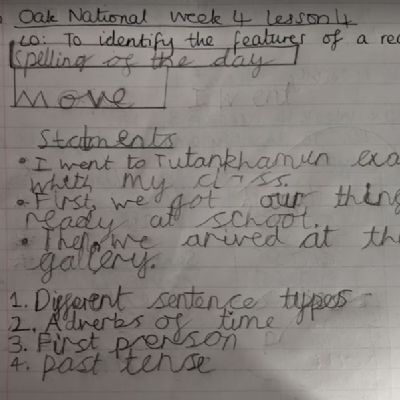 Oak National week 4 lesson 4
LO: To identify the features of a rec
Spelling of the day
move I went
Statments
• I went to Tutankhamun exa
whith my class.
• First, we got our thing
ready at school.
• Then, we arived at th
gallery.
1. Different sentence types
2. Adverbs of time
3. First prerson
4. past tense